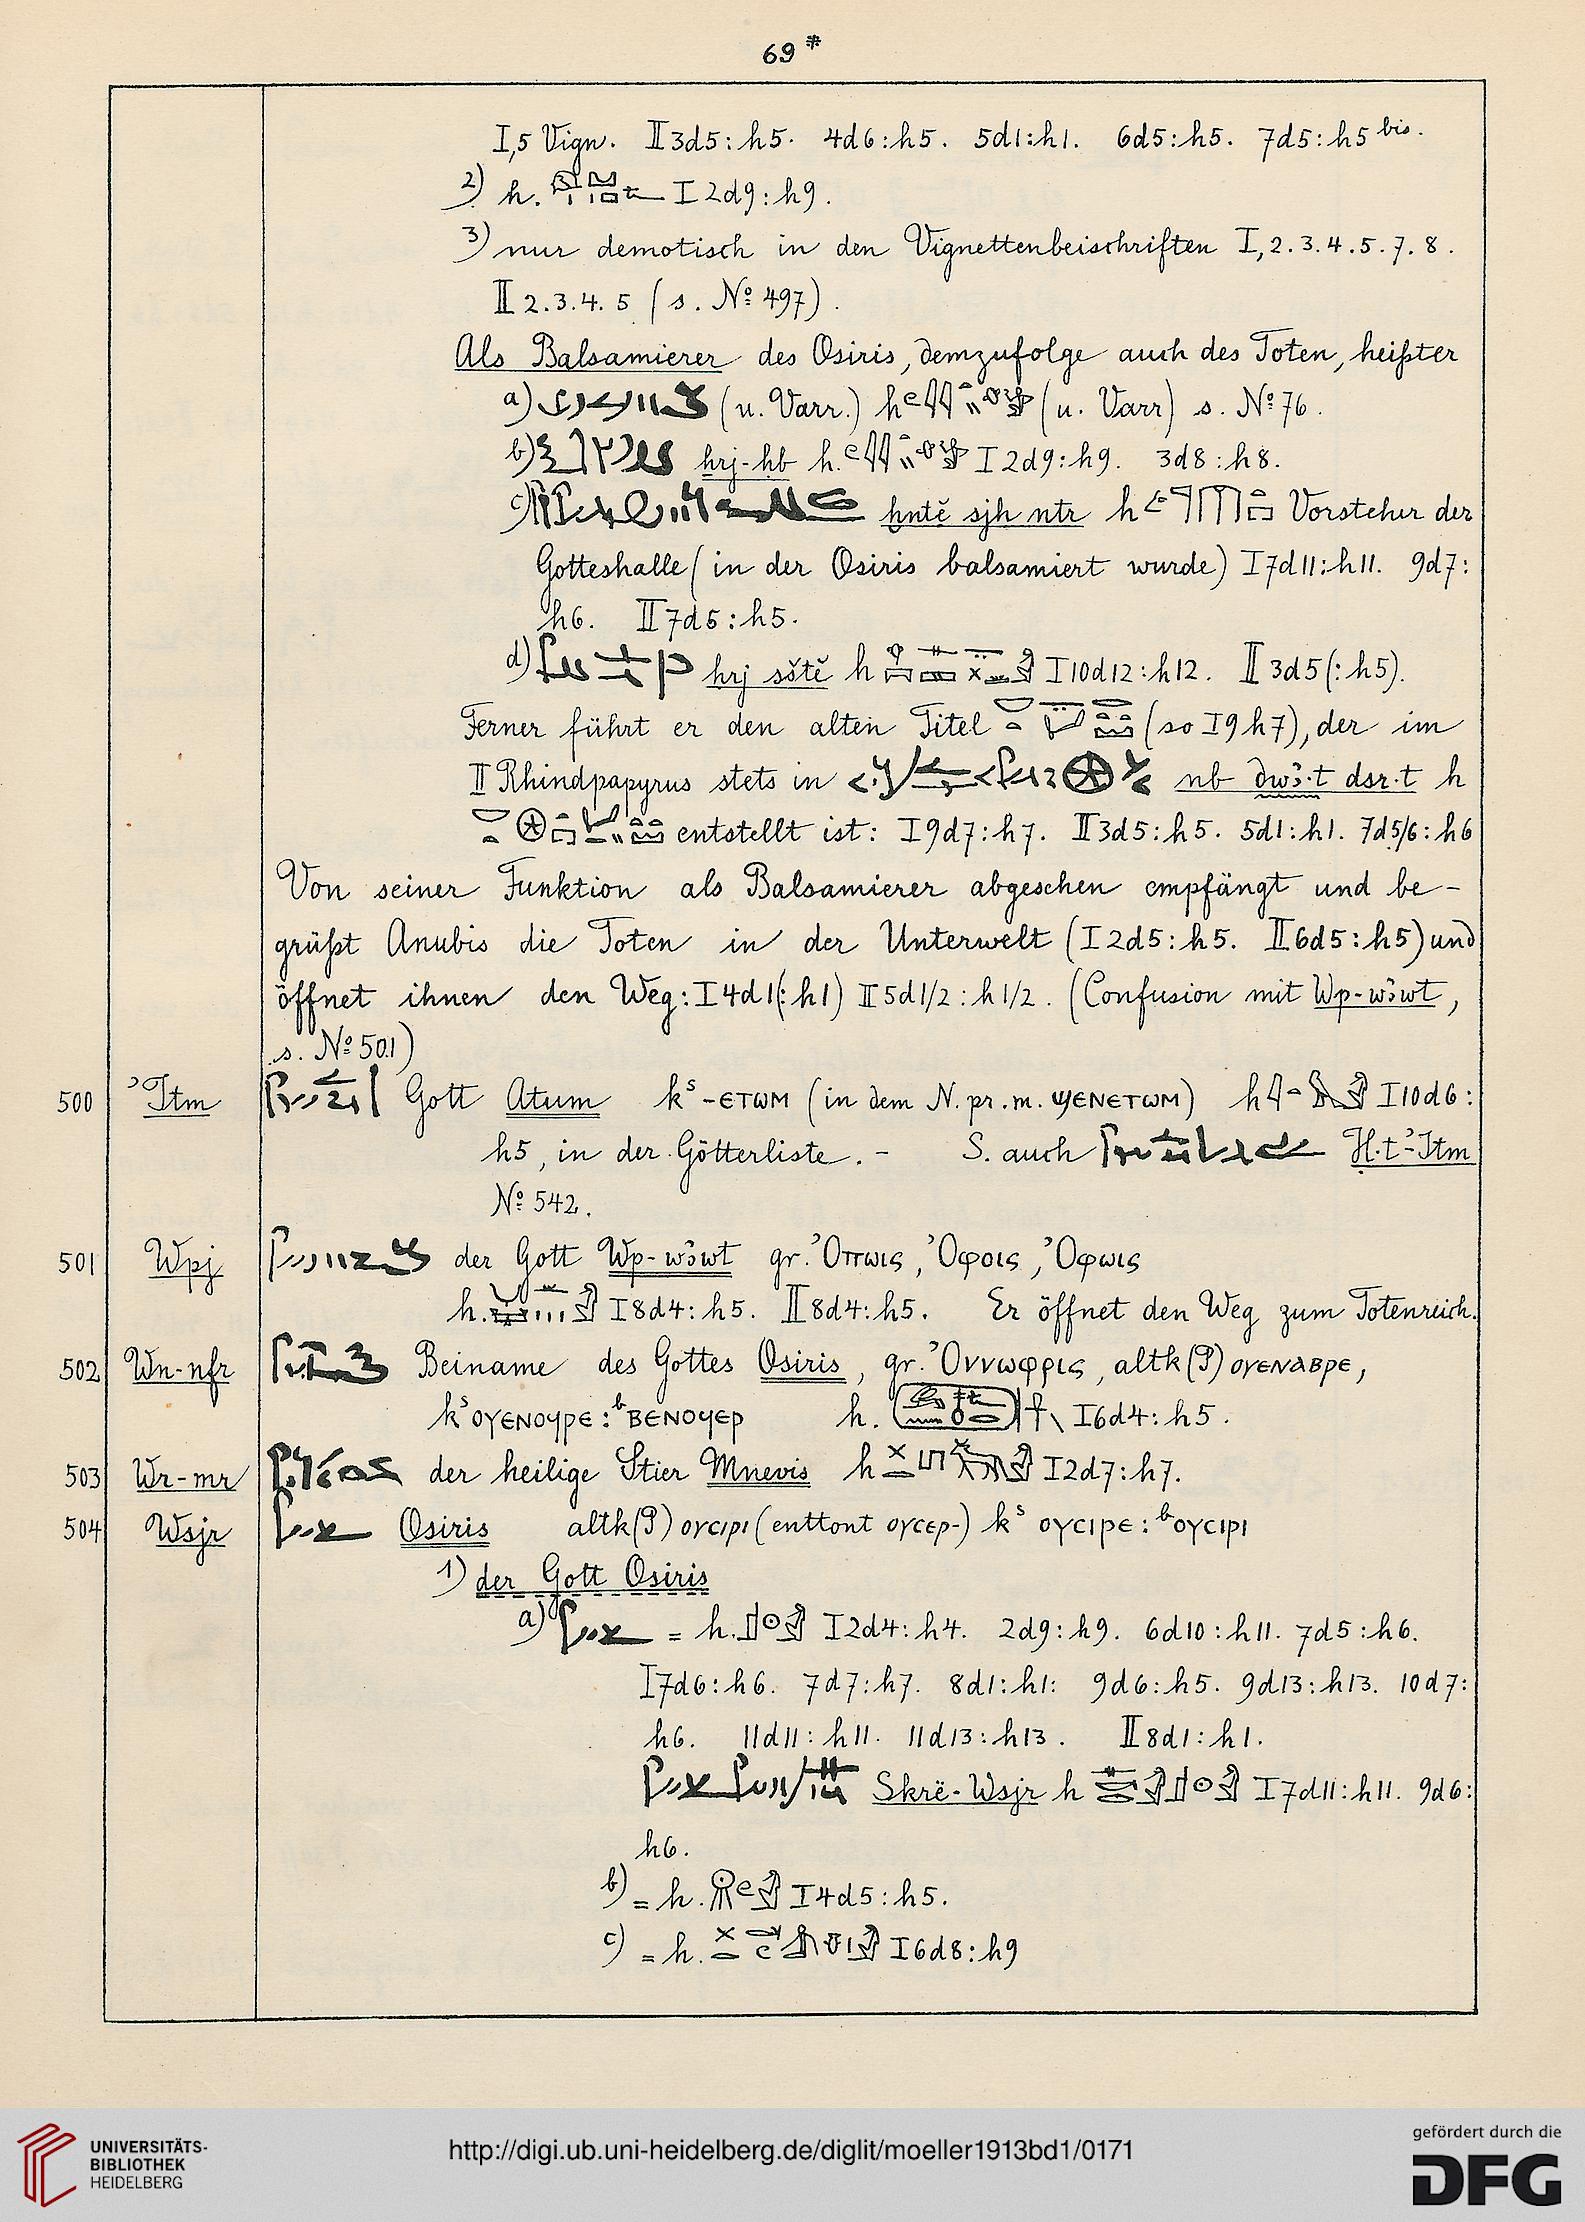 69*
I,5 Vign. II 3d5:h5. 4d6:h5. 5d1:h1. 6d5:h5. 7d5:h5 bis.
2) h. I 2d9:h9.
3) nur demotisch in den Vignettenbeischriften I, 2.3.4.5.7.8.
II 2.3.4.5 (s. No 497).
Als Balsamierer des Osiris, demzufolge auch des Toten, heißt er
a) (u. Varr.) h (u. Varr) s. No 76.
b) ḫrj-ḥb h. I 2d9:h9. 3d8:h8.
c) ḫntĕ sjḥ ntr h Vorsteher der
Gotteshalle (in der Osiris balsamiert wurde) I 7d11:h11. 9d7:
h6. II 7d5:h5.
d) ḥrj sštĕ h I 10d12:h12. II 3d5(:h5).
Ferner führt er den alten Titel (so I 9h7), der im
II Rhindpapyrus stets in nb dwꜣ·t dsr·t h
entstellt ist: I 9d7:h7. II 3d5:h5. 5d1:h1. 7d5/6:h6
Von seiner Funktion als Balsamierer abgesehen empfängt und be-
grüßt Anubis die Toten in der Unterwelt (I 2d5:h5. II 6d5:h5) und
öffnet ihnen den Weg: I 4d1(:h1) II 5d1/2:h1/2. (Confusion mit Wp-wꜣwt,
s. No 501)
500 ʾItm Gott Atum kˢ -ⲉⲧⲱⲙ (in dem N.pr.m. ⲯⲉⲛⲉⲧⲱⲙ) h I 10d6:
h5, in der Götterliste. - S. auch Ḥ·t-ʾItm
No 542.
501 Wpj der Gott Wp-wꜣwt gr. Ὀπωις, Ὀφοις, Ὀφωις
h. I 8d4:h5. II 8d4:h5. Er öffnet den Weg zum Totenreich.
502 Wn-nfr Beiname des Gottes Osiris, gr. Ὀννωφρις, altk(P) ⲟⲩⲉⲛⲁⲃⲣⲉ,
kˢ ⲟⲩⲉⲛⲟϥⲣⲉ : ᵇⲃⲉⲛⲟϥⲉⲣ h. I 6d4:h5.
503 Wr-mr der heilige Stier Mnevis h I 2d7:h7.
504 Wsjr Osiris altk(P) ⲟⲩⲥⲓⲣⲓ (enttont ⲟⲩⲥⲉⲣ-) kˢ ⲟⲩⲥⲓⲣⲉ : ᵇⲟⲩⲥⲓⲣⲓ
1) der Gott Osiris
a) = h. I 2d4:h4. 2d9:h9. 6d10:h11. 7d5:h6.
I 7d6:h6. 7d7:h7. 8d1:h1: 9d6:h5. 9d13:h13. 10d7:
h6. 11d11:h11. 11d13:h13. II 8d1:h1.
Skrë-Wsjr h I 7d11:h11. 9d6:
h6.
b) = h. I 4d5:h5.
c) = h. I 6d8:h9
UNIVERSITÄTS-
BIBLIOTHEK
HEIDELBERG
http://digi.ub.uni-heidelberg.de/diglit/moeller1913bd1/0171
gefördert durch die
DFG